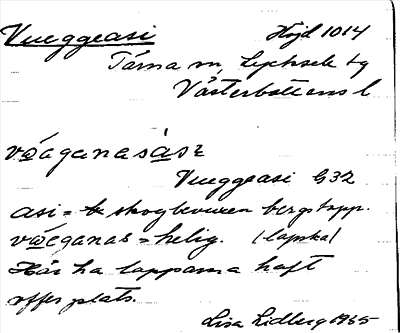 Vueggeasi Höjd 1014
Tärna sn, Lycksele tg
Västerbottens l
Vueggeasi G32
asi = skogbevuxen bergstopp.
= helig. (lapska)
Här ha lapparna haft
offerplats.
Lisa Lidberg 1965